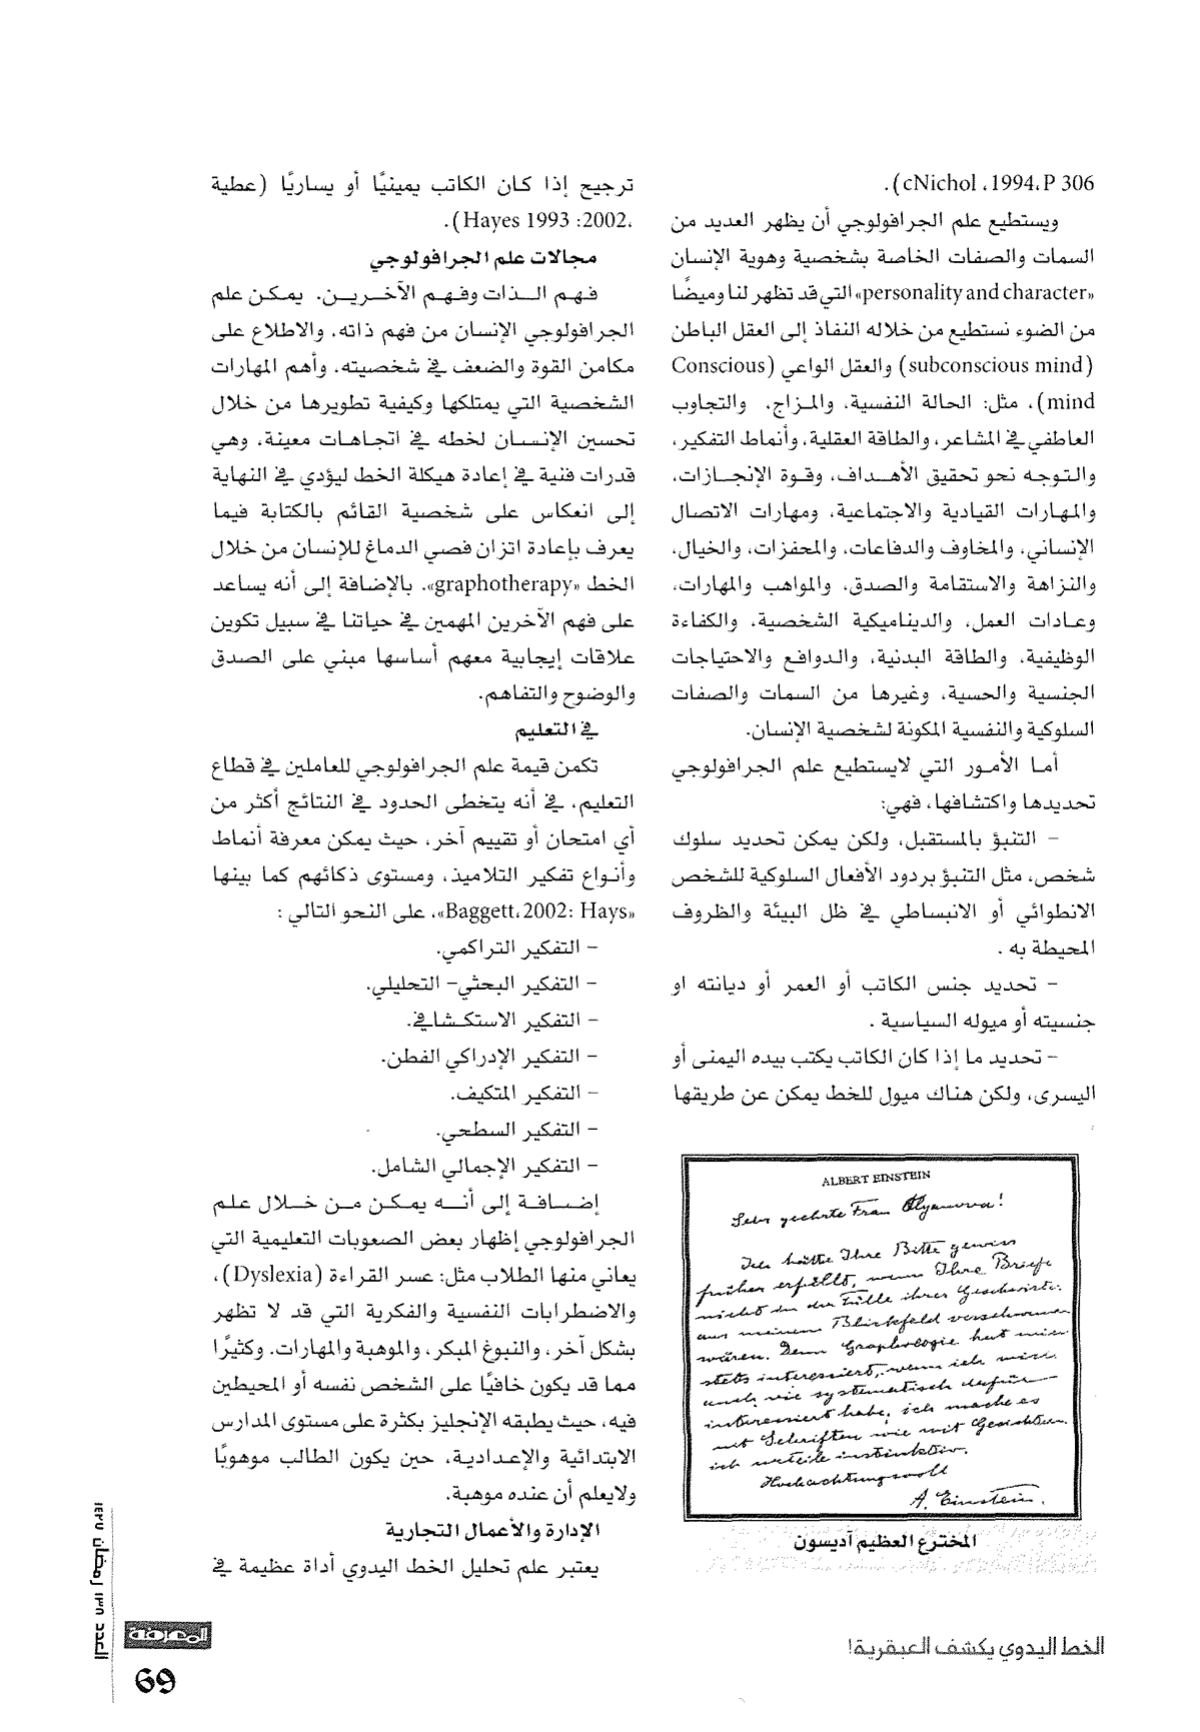 cNichol ،1994، P 306).
ويستطيع علم الجرافولوجي أن يظهر العديد من
السمات والصفات الخاصة بشخصية وهوية الإنسان
«personality and character» التي قد تظهر لنا وميضًا
من الضوء نستطيع من خلاله النفاذ إلى العقل الباطن
(subconscious mind) والعقل الواعي (Conscious
mind)، مثل: الحالة النفسية، والمزاج، والتجاوب
العاطفي في المشاعر، والطاقة العقلية، وأنماط التفكير،
والتوجه نحو تحقيق الأهداف، وقوة الإنجازات،
والمهارات القيادية والاجتماعية، ومهارات الاتصال
الإنساني، والمخاوف والدفاعات، والمحفزات، والخيال،
والنزاهة والاستقامة والصدق، والمواهب والمهارات،
وعادات العمل، والديناميكية الشخصية، والكفاءة
الوظيفية، والطاقة البدنية، والدوافع والاحتياجات
الجنسية والحسية، وغيرها من السمات والصفات
السلوكية والنفسية المكونة لشخصية الإنسان.
أما الأمور التي لايستطيع علم الجرافولوجي
تحديدها واكتشافها، فهي:
– التنبؤ بالمستقبل، ولكن يمكن تحديد سلوك
شخص، مثل التنبؤ بردود الأفعال السلوكية للشخص
الانطوائي أو الانبساطي في ظل البيئة والظروف
المحيطة به .
– تحديد جنس الكاتب أو العمر أو ديانته او
جنسيته أو ميوله السياسية .
– تحديد ما إذا كان الكاتب يكتب بيده اليمنى أو
اليسرى، ولكن هناك ميول للخط يمكن عن طريقها
ALBERT EINSTEIN
Sehr geehrte Frau Olyanova!
Ich hätte Ihre Bitte gewiss
früher erfüllt, wenn Ihre Briefe
nicht in der Fülle ihrer Geschwister
aus meinem Blickfeld verschwunden
wären. Denn Graphologie hat mich
stets interessiert, wenn ich mich
auch nie systematisch dafür
interessiert habe, ich mache es
mit Schriften wie mit Gesichtern,
ich urteile instinktiv.
Hochachtungsvoll
A. Einstein.
المخترع العظيم أديسون
ترجيح إذا كان الكاتب يمينيًا أو يساريًا (عطية
،2002: Hayes 1993).
مجالات علم الجرافولوجي
فهم الذات وفهم الآخرين. يمكن علم
الجرافولوجي الإنسان من فهم ذاته، والاطلاع على
مكامن القوة والضعف في شخصيته، وأهم المهارات
الشخصية التي يمتلكها وكيفية تطويرها من خلال
تحسين الإنسان لخطه في اتجاهات معينة، وهي
قدرات فنية في إعادة هيكلة الخط ليؤدي في النهاية
إلى انعكاس على شخصية القائم بالكتابة فيما
يعرف بإعادة اتزان فصي الدماغ للإنسان من خلال
الخط «graphotherapy». بالإضافة إلى أنه يساعد
على فهم الآخرين المهمين في حياتنا في سبيل تكوين
علاقات إيجابية معهم أساسها مبني على الصدق
والوضوح والتفاهم.
في التعليم
تكمن قيمة علم الجرافولوجي للعاملين في قطاع
التعليم، في أنه يتخطى الحدود في النتائج أكثر من
أي امتحان أو تقييم آخر، حيث يمكن معرفة أنماط
وأنواع تفكير التلاميذ، ومستوى ذكائهم كما بينها
«Baggett، 2002: Hays»، على النحو التالي :
– التفكير التراكمي.
– التفكير البحثي- التحليلي.
– التفكير الاستكشافي.
– التفكير الإدراكي الفطن.
– التفكير المتكيف.
– التفكير السطحي.
– التفكير الإجمالي الشامل.
إضافة إلى أنه يمكن من خلال علم
الجرافولوجي إظهار بعض الصعوبات التعليمية التي
يعاني منها الطلاب مثل: عسر القراءة (Dyslexia)،
والاضطرابات النفسية والفكرية التي قد لا تظهر
بشكل آخر، والنبوغ المبكر، والموهبة والمهارات. وكثيرًا
مما قد يكون خافيًا على الشخص نفسه أو المحيطين
فيه، حيث يطبقه الإنجليز بكثرة على مستوى المدارس
الابتدائية والإعدادية، حين يكون الطالب موهوبًا
ولايعلم أن عنده موهبة.
الإدارة والأعمال التجارية
يعتبر علم تحليل الخط اليدوي أداة عظيمة في
العدد ١٣٨ رمضان ١٤٢٧
المعرفة
69
الخط اليدوي يكشف العبقرية!